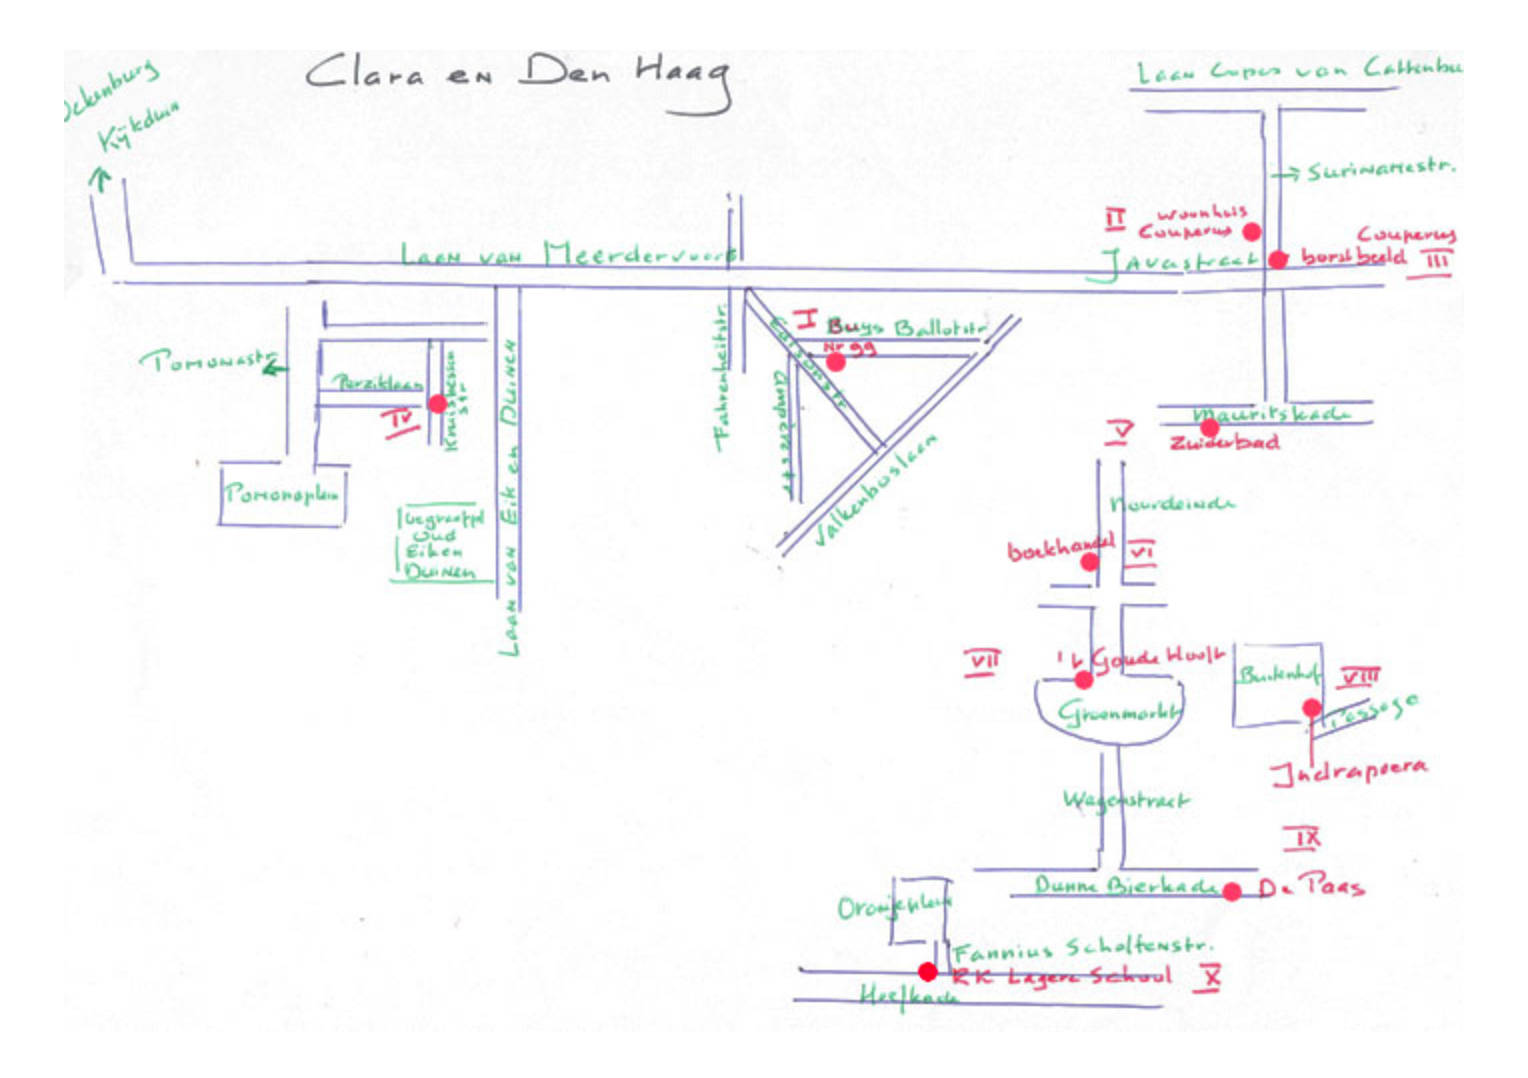 Clara en Den Haag
Ockenburg
Kijkduin
Laan Copes van Cattenbu
Surinamestr.
II
woonhuis
Couperus
Couperus
borstbeeld III
Javastraat
Laan van Meerdervoort
Pomonastr
Perziklaan
IV
Kruisbessenstr
Pomonaplein
begraafpl
Oud
Eiken
Duinen
Laan van Eik en Duinen
Fahrenheitstr.
Edisonstr
I
Buys Ballotstr
Nr 99
Amperestr
Valkenboslaan
Mauritskade
Zuiderbad
V
Noordeinde
boekhandel VI
VII
't Goude Hooft
Groenmarkt
Buitenhof
VIII
Passage
Indrapoera
Wagenstraat
IX
Dunne Bierkade
De Paas
Oranjeplein
Fannius Scholtenstr.
RK Lagere School X
Hoefkade